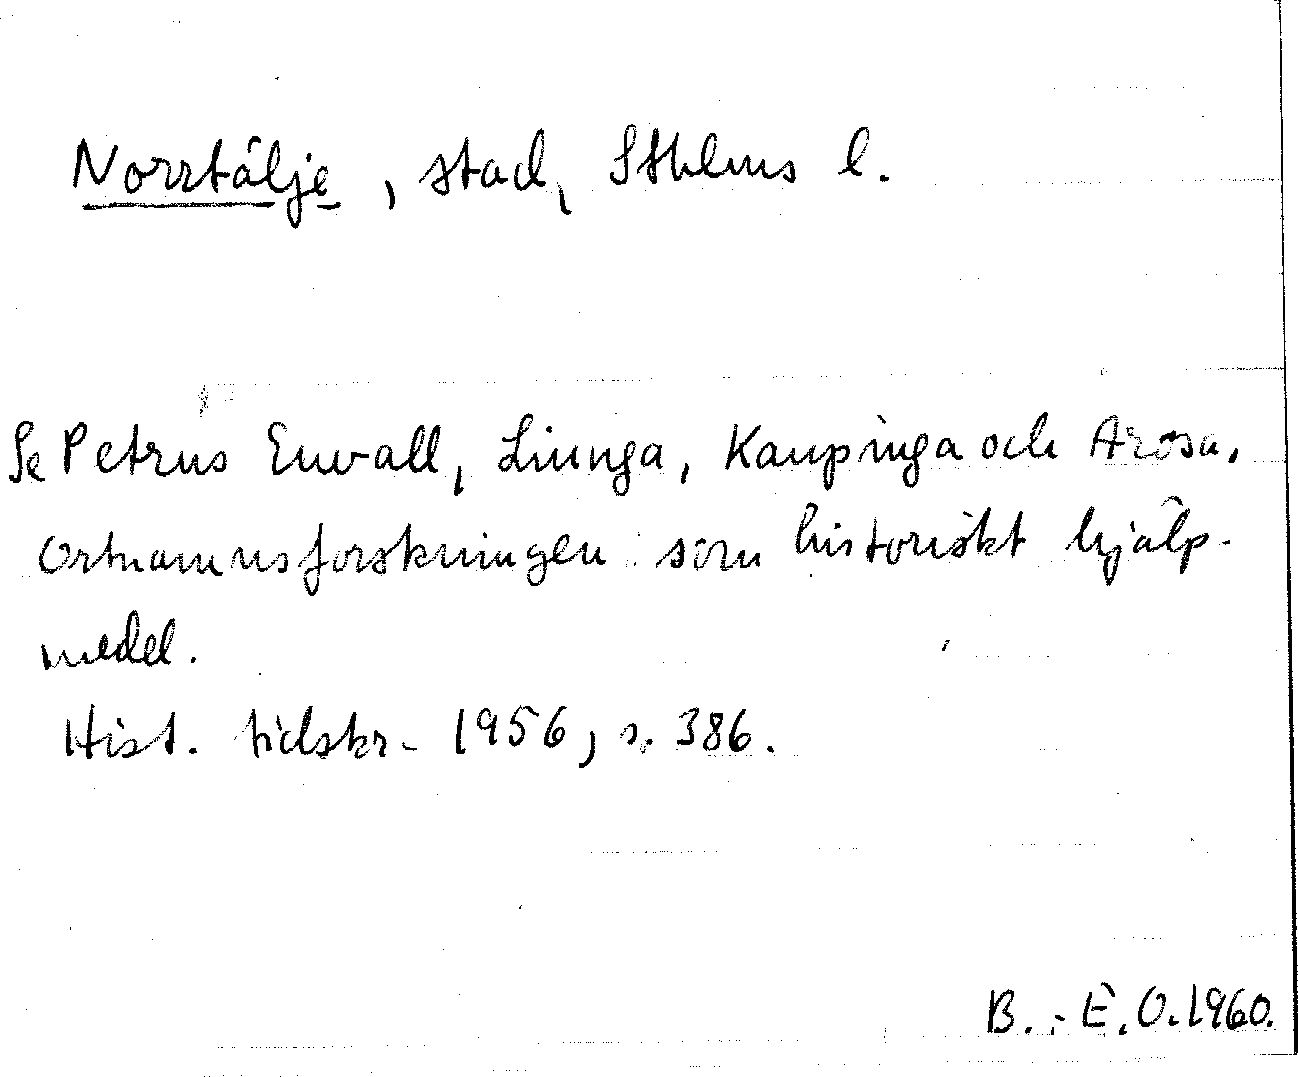 Norrtälje, stad, Sthlms l.
Se Petrus Envall, Liunga, Kaupinga och Arosa.
Ortnamnsforskningen som historiskt hjälp-
medel.
Hist. tidskr. 1956, s. 386.
B.-E.O. 1960.